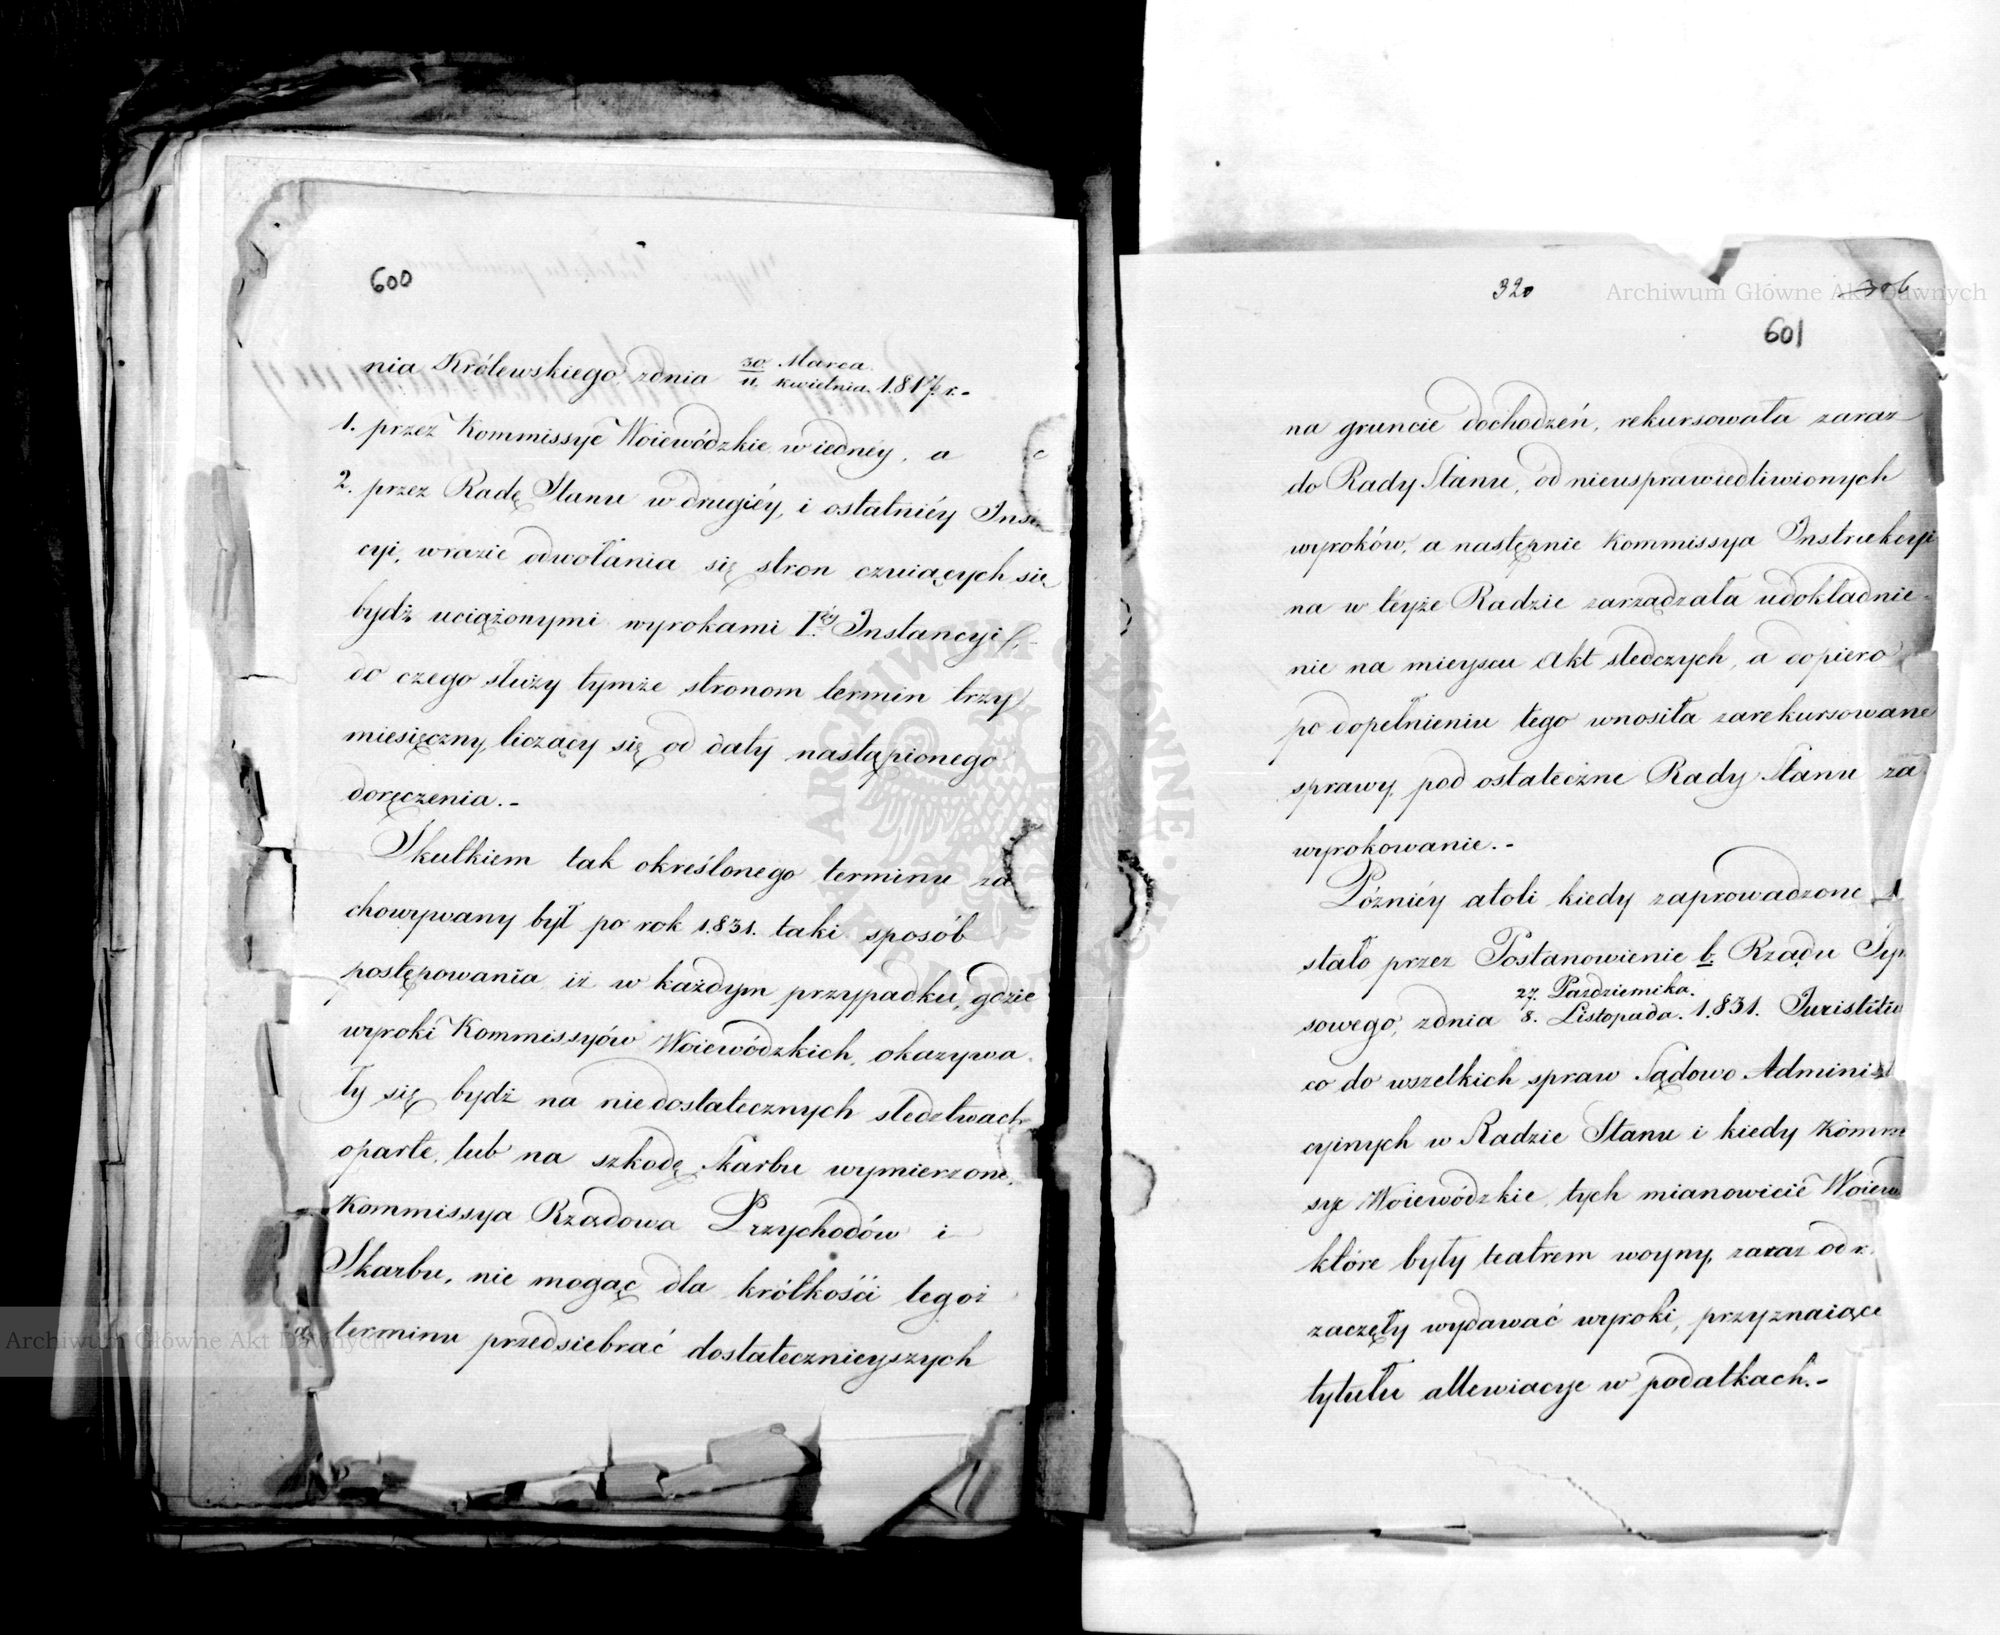 600
nia Królewskiego zdnia 30 Marca / 11. kwietnia. 1.817. r.-
1. przez Kommissye Woiewódzkie w iednéy, a
2. przez Radę Stanu w drugiéy, i ostatniéy
cyi, wrazie odwołania się stron czuiących się
bydź uciążonymi wyrokami Iéy Instancyi,
do czego służy tymże stronom termin trzy
miesięczny, liczący się od daty nastąpionego
doręczenia.-
Skutkiem tak określonego terminu za
chowywany był po rok 1.831. taki sposób
postępowania iż w każdym przypadku, gdzie
wyroki Kommissyów Woiewódzkich, okazywa
ły się bydź na niedostatecznych sledztwach
oparte, lub na szkodę Skarbu wymierzone,
Kommissya Rządowa Przychodów i
Skarbu, nie mogąc dla krótkości tegoż
terminu przedsiebrać dostatecznieyszych
320
306
601
na gruncie dochodzeń, rekursowała zaraz
do Rady Stanu, od nieusprawiedliwionych
wyroków, a następnie Kommissya Instrukcyi
na w teyże Radzie zarządzała udokładnie-
nie na mieyscu Akt sledczych, a dopiero
po dopełnieniu tego wnosiła zarekursowane
sprawy, pod ostateczne Rady Stanu za
wyrokowanie.-
Późniéy atoli kiedy zaprowadzone
stało przez Postanowienie b. Rządu Tym
sowego, zdnia 27. Pazdziernika. / 8. Listopada. 1.831.
co do wszelkich spraw Sądowo Administ
cyinych w Radzie Stanu i kiedy Komm
sye Woiewódzkie, tych mianowicie Woiew
które były teatrem woyny, zaraz od r.
zaczęły wydawać wyroki, przyznaiące
tytułu allewiacye w podatkach.-
Archiwum Główne Akt Dawnych
Archiwum Główne Akt Dawnych